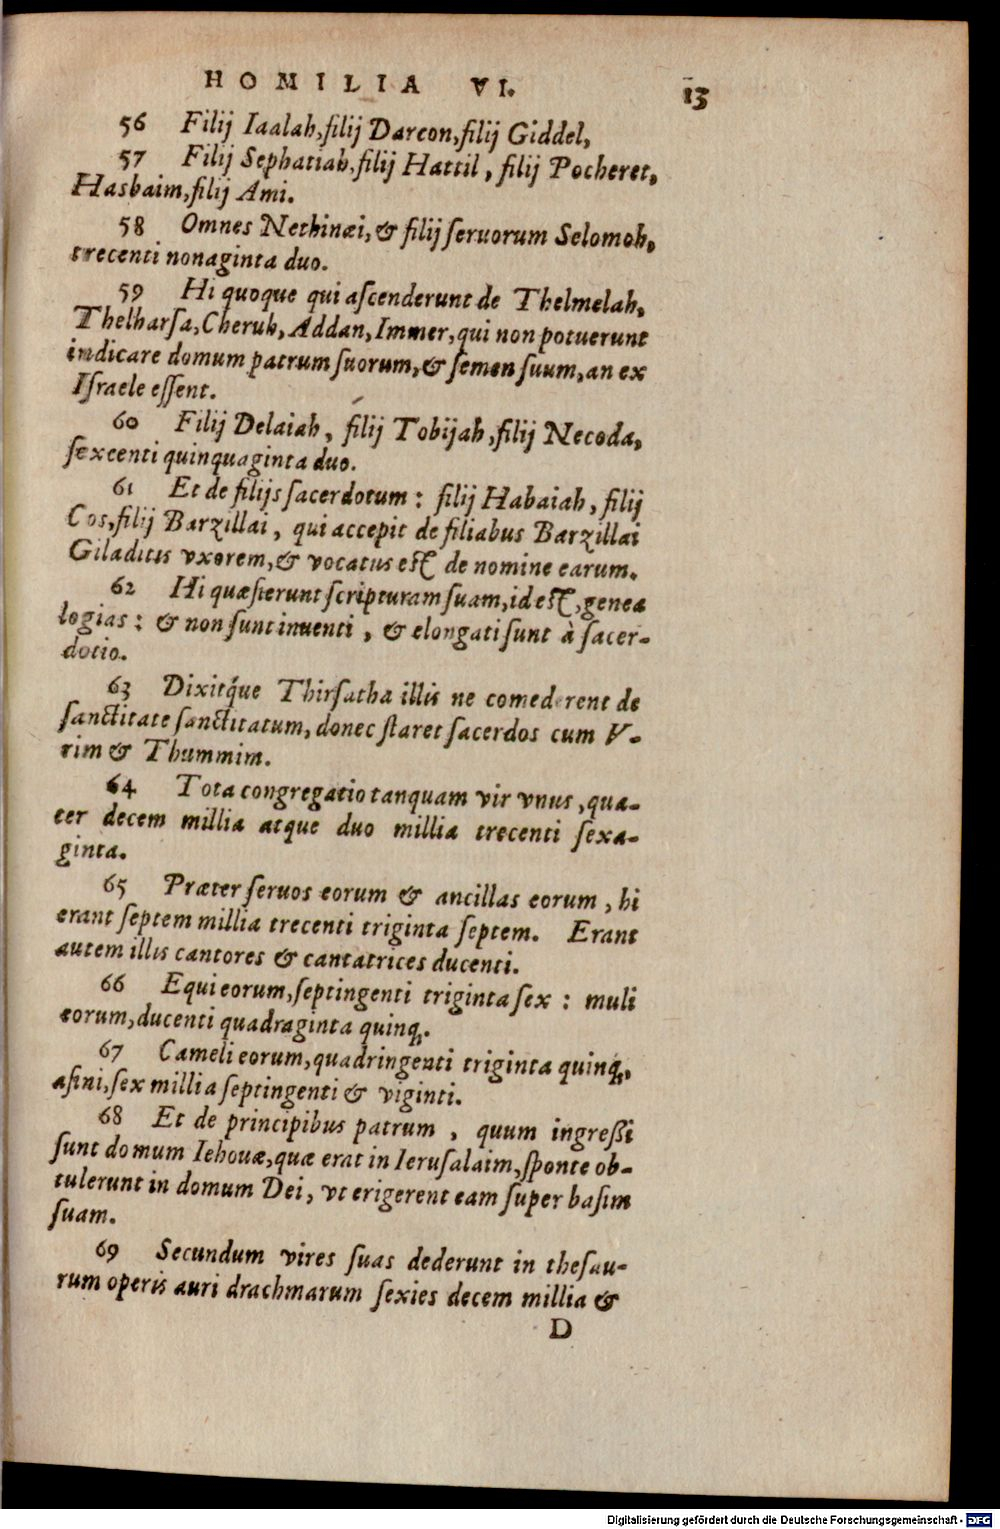 HOMILIA VI. 13
56 Filij Iaalah, filij Darcon, filij Giddel,
57 Filij Sephatiah, filij Hattil, filij Pocheret,
Hasbaim, filij Ami.
58 Omnes Nethinæi, & filij ſeruorum Selomoh,
trecenti nonaginta duo.
59 Hi quoque qui aſcenderunt de Thelmelah,
Thelharſa, Cherub, Addan, Immer, qui non potuerunt
indicare domum patrum ſuorum, & ſemen ſuum, an ex
Iſraele eſſent.
60 Filij Delaiah, filij Tobijah, filij Necoda,
ſexcenti quinquaginta duo.
61 Et de filijs ſacerdotum: filij Habaiah, filij
Cos, filij Barzillai, qui accepit de filiabus Barzillai
Giladitis vxorem, & vocatus eſt de nomine earum.
62 Hi quæſierunt ſcripturam ſuam, id eſt, genea
logias: & non ſunt inuenti, & elongati ſunt à ſacer-
dotio.
63 Dixitq́ue Thirſatha illis ne comederent de
ſanctitate ſanctitatum, donec ſtaret ſacerdos cum V-
rim & Thummim.
64 Tota congregatio tanquam vir vnus, qua-
ter decem millia atque duo millia trecenti ſexa-
ginta.
65 Præter ſeruos eorum & ancillas eorum, hi
erant ſeptem millia trecenti triginta ſeptem. Erant
autem illis cantores & cantatrices ducenti.
66 Equi eorum, ſeptingenti triginta ſex: muli
eorum, ducenti quadraginta quinq;.
67 Cameli eorum, quadringenti triginta quinq;,
aſini, ſex millia ſeptingenti & viginti.
68 Et de principibus patrum, quum ingreßi
ſunt domum Iehouæ, quæ erat in Ieruſalaim, ſponte ob-
tulerunt in domum Dei, vt erigerent eam ſuper baſim
ſuam.
69 Secundum vires ſuas dederunt in theſau-
rum operis auri drachmarum ſexies decem millia &
D
Digitalisierung gefördert durch die Deutsche Forschungsgemeinschaft - DFG